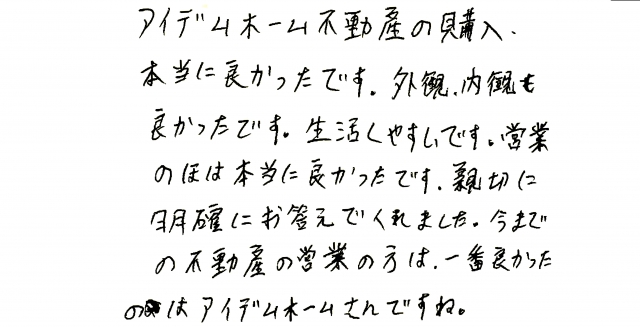 アイデムホーム不動産の購入、
本当に良かったです。外観、内観も
良かったです。生活しやすいです。営業
のほは本当に良かったです。親切に
明確にお答えでくれました。今まで
の不動産の営業の方は、一番良かった
のはアイデムホームさんですね。